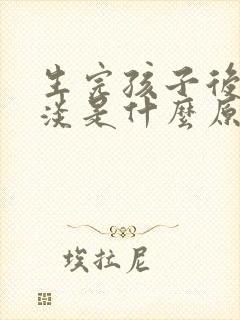 生完孩子後
淡是什麼原
埃拉尼